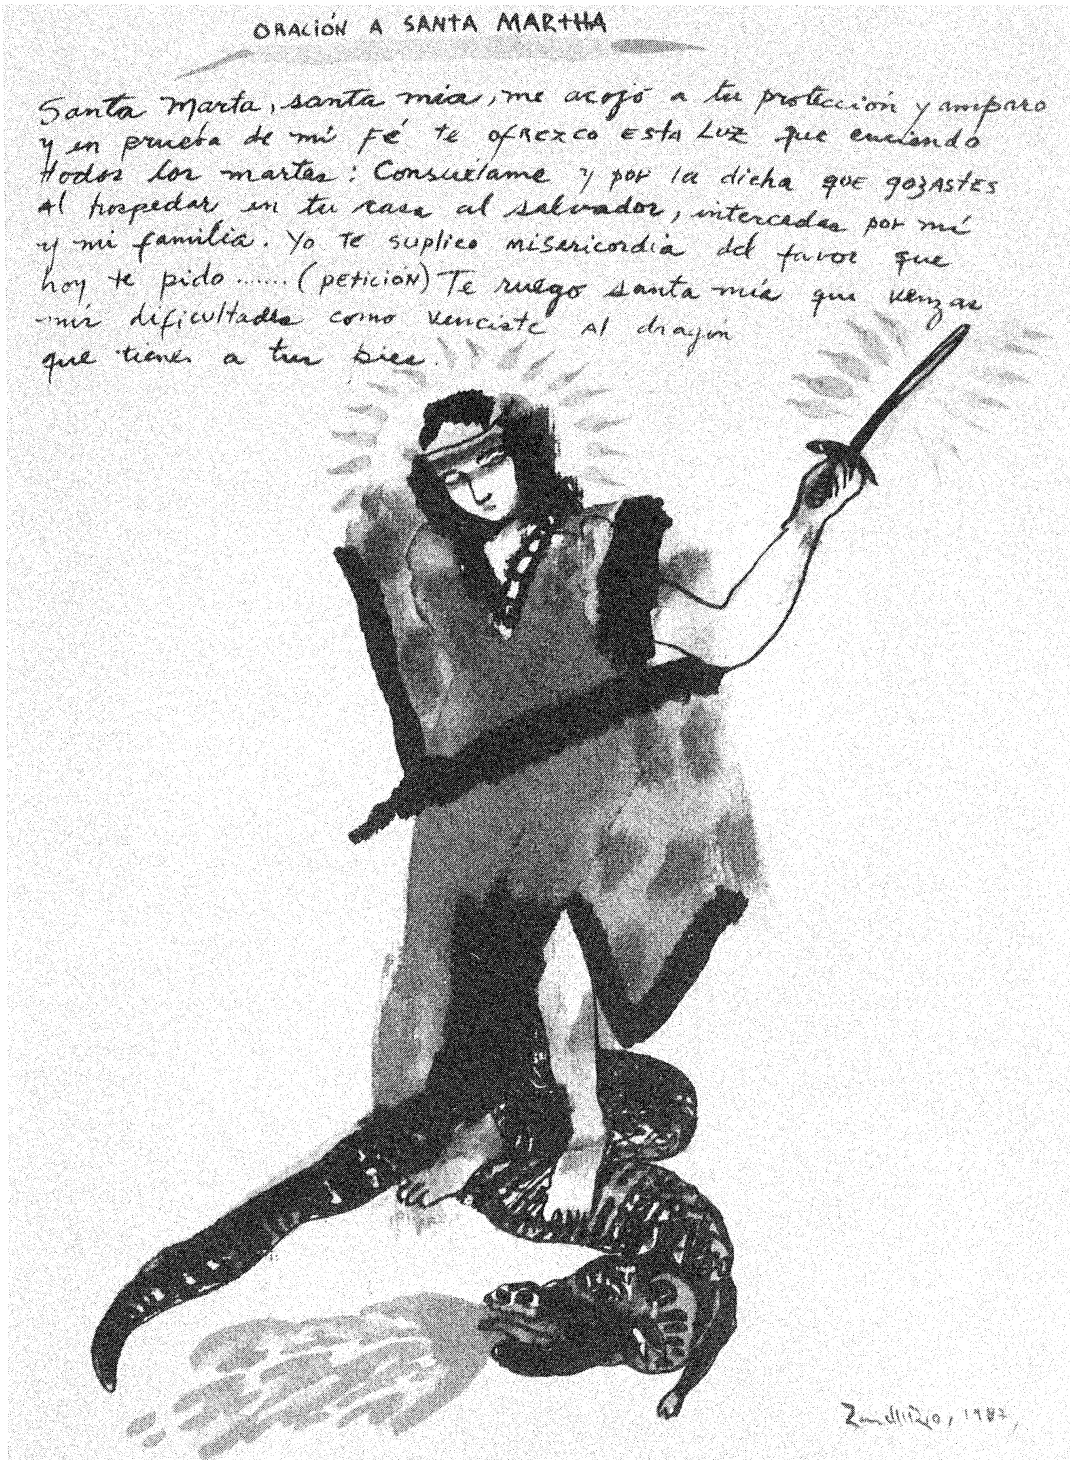 ORACIÓN A SANTA MARTHA
Santa Marta, santa mia, me acojó a tu protección y amparo
y en prueba de mi FÉ te oFREZCO ESta LUZ que enciendo
todos los martes: Consuélame y por la dicha que gozAStES
Al hospedar en tu casa al salvador, intercedas por mí
y mi familia. Yo te suplico misericordia del favor que
hoy te pido ....... (PETICIÓN) Te ruego santa mía que venzas
mis dificultades como venciste Al dragón
que tienes a tus pies.
1987,